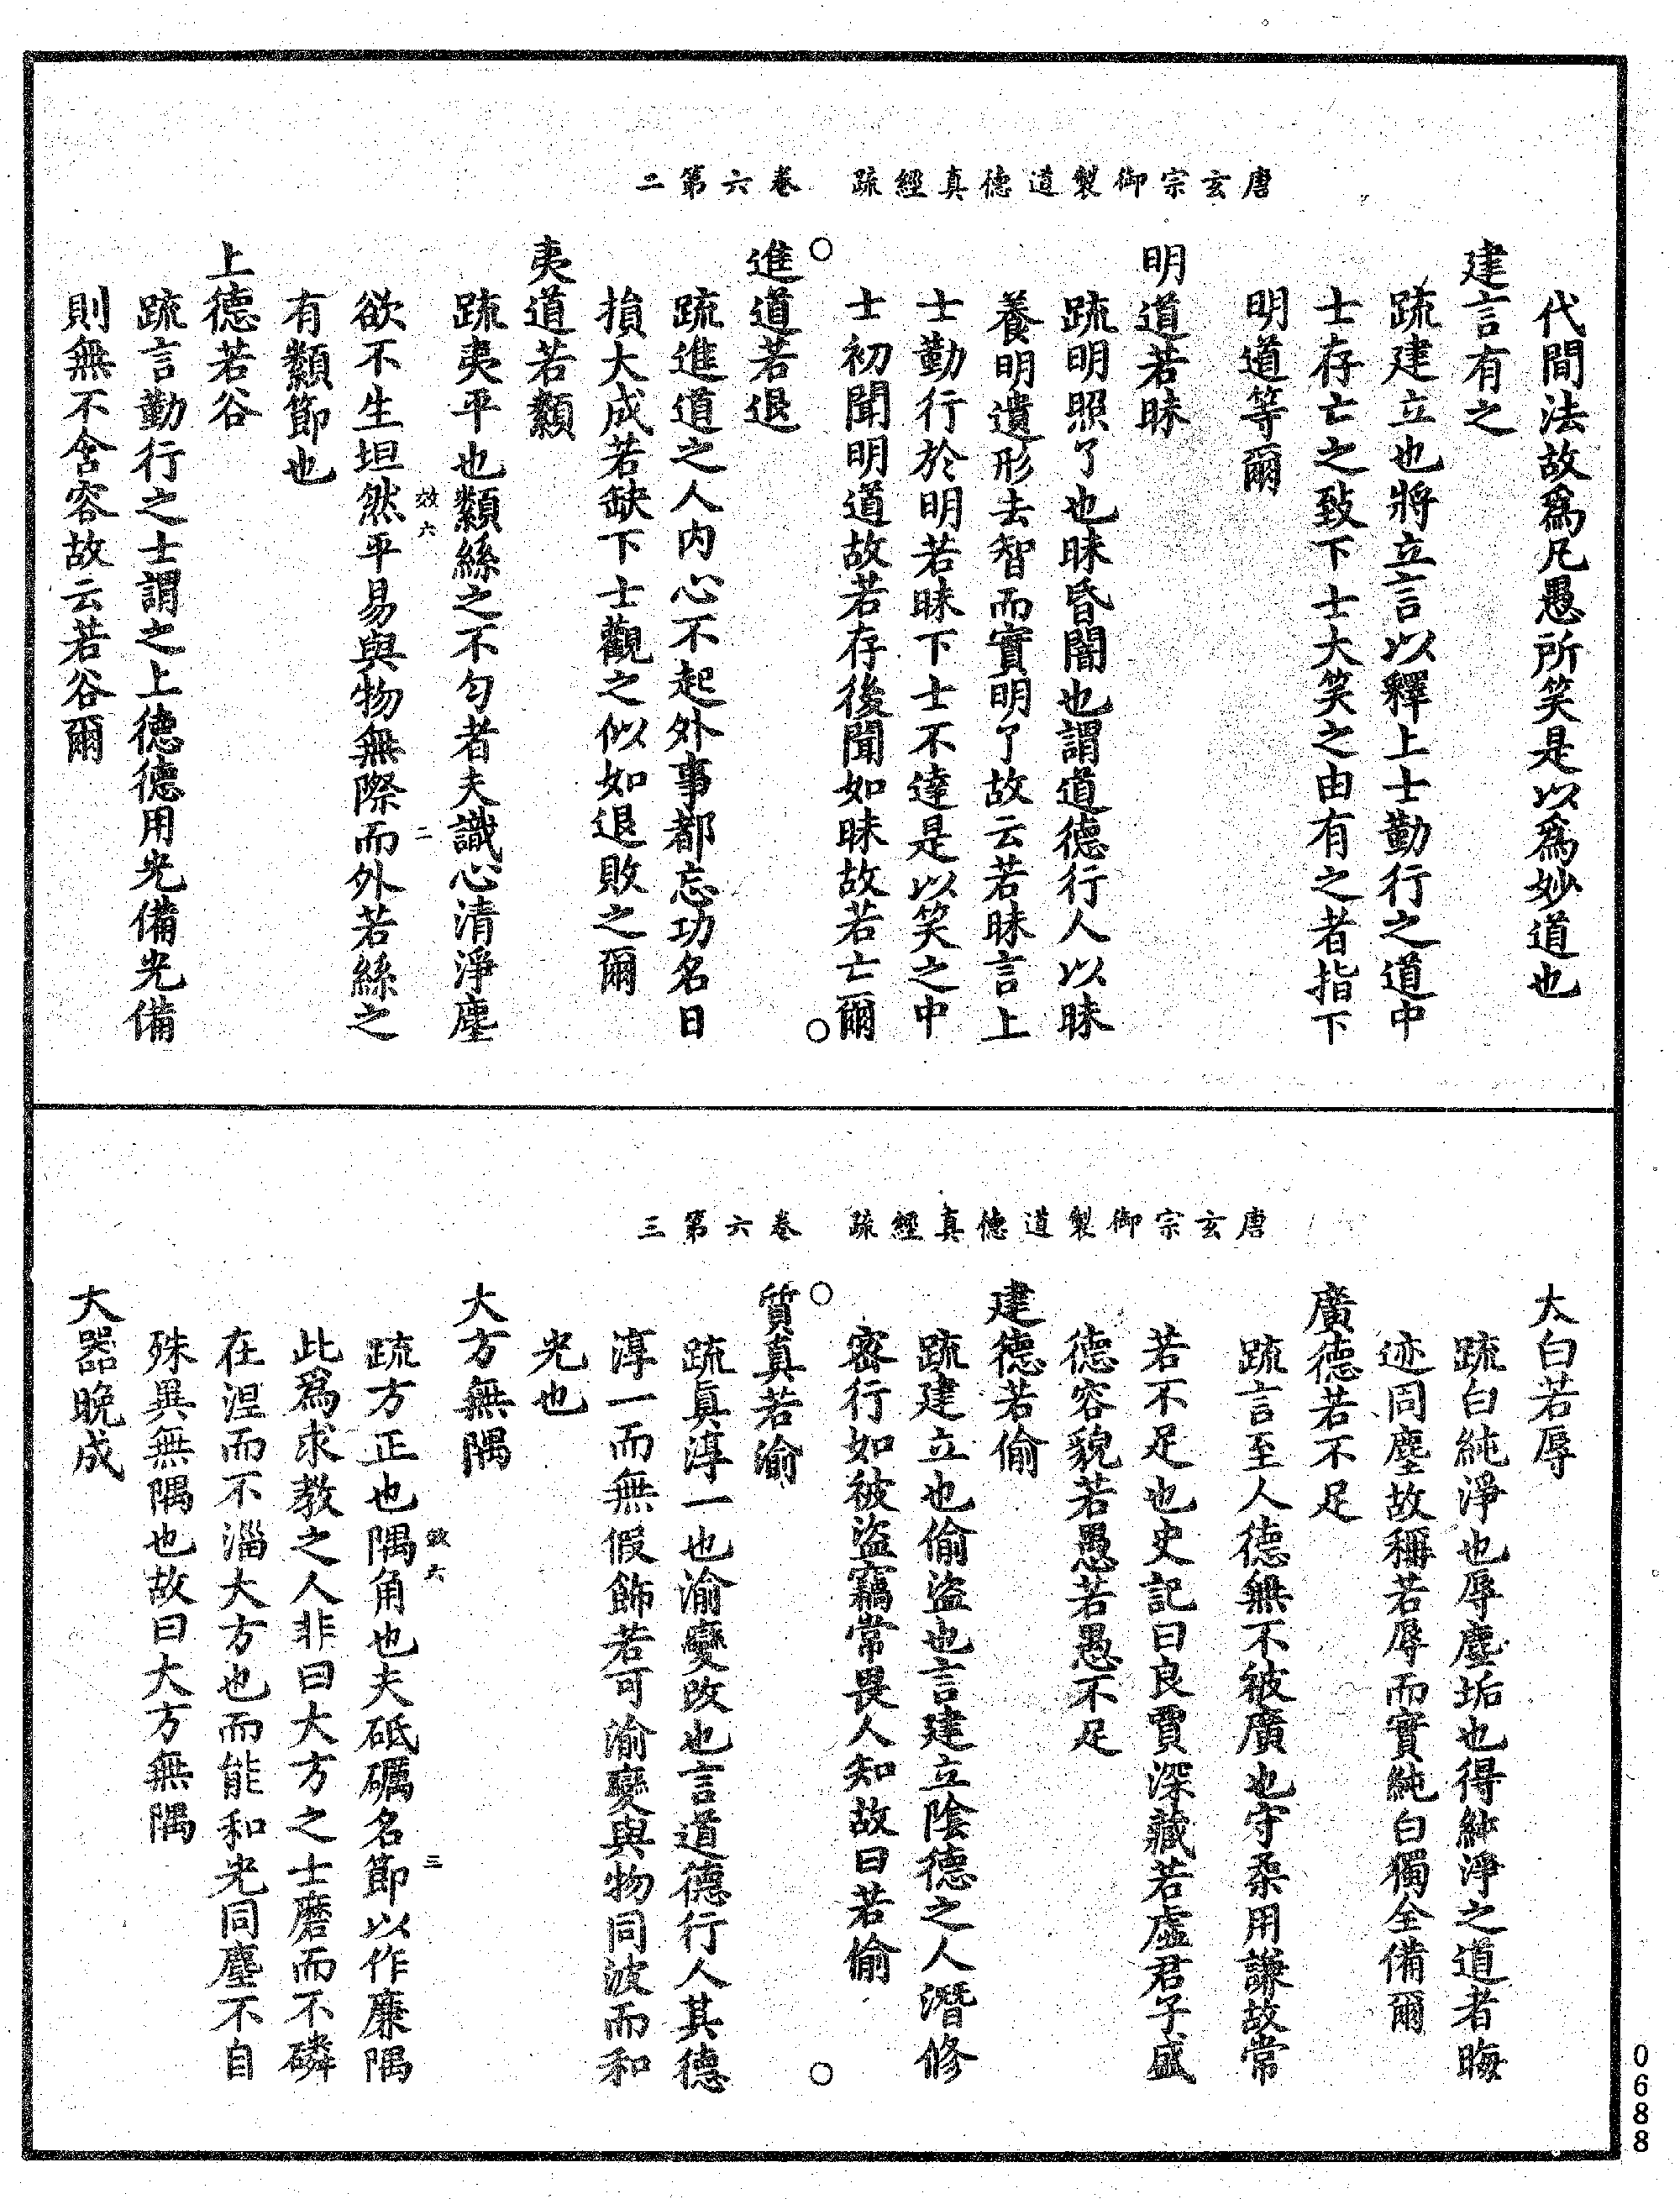 唐玄宗御製道德真經疏　卷六第二
代間法故爲凡愚所笑是以爲妙道也
建言有之
疏建立也將立言以釋上士勤行之道中
士存亡之致下士大笑之由有之者指下
明道等爾
明道若昧
疏明照了也昧昏闇也謂道德行人以昧
養明遺形去智而實明了故云若昧言上
士勤行於明若昧下士不達是以笑之中
士初聞明道故若存後聞如昧故若亡爾
進道若退
疏進道之人內心不起外事都忘功名日
損大成若缺下士觀之似如退敗之爾
夷道若纇
疏夷平也纇絲之不勻者夫識心清淨塵
效六　二
欲不生坦然平易與物無際而外若絲之
有纇節也
上德若谷
疏言勤行之士謂之上德德用光備光備
則無不含容故云若谷爾
唐玄宗御製道德真經疏　卷六第三
大白若辱
疏白純淨也辱塵垢也得純淨之道者晦
迹同塵故稱若辱而實純白獨全備爾
廣德若不足
疏言至人德無不被廣也守柔用謙故常
若不足也史記曰良賈深藏若虛君子盛
德容貌若愚若愚不足
建德若偷
疏建立也偷盜也言建立陰德之人潛修
密行如被盜竊常畏人知故曰若偷
質真若渝
疏真淳一也渝變改也言道德行人其德
淳一而無假飾若可渝變與物同波而和
光也
大方無隅
效六　三
疏方正也隅角也夫砥礪名節以作廉隅
此爲求教之人非曰大方之士磨而不磷
在涅而不淄大方也而能和光同塵不自
殊異無隅也故曰大方無隅
大器晚成
0688